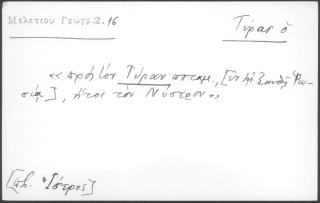 Μελετίου Γεωγρ.2.16
Τύρας ὁ
«πρὸς τὸν Τύραν ποταμ., [ἐν τῇ Ῥω-
σίᾳ], ἤτοι τὸν Νύστρον»
[πβ. Ἴστρος]